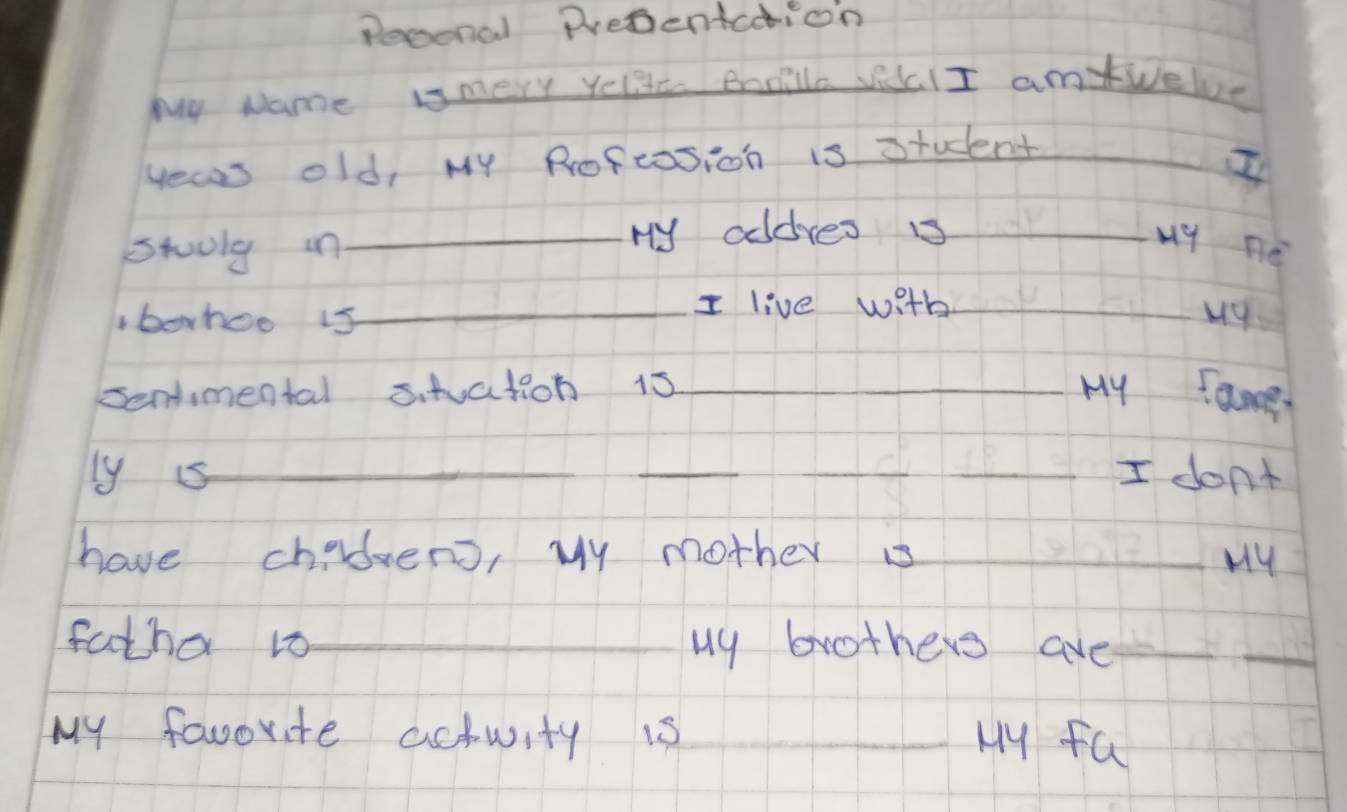 Personal Presentation
My Name is mery yelitza Bonilla vidal I am twelve
years old, MY Profession is Student I
study in MY addres is MY Ne
iborhoo is I live with MY
sentimental situation is MY fame
ly is I dont
have childrens, MY mother is MY
father is MY brothers are
MY favorite activity is MY fa